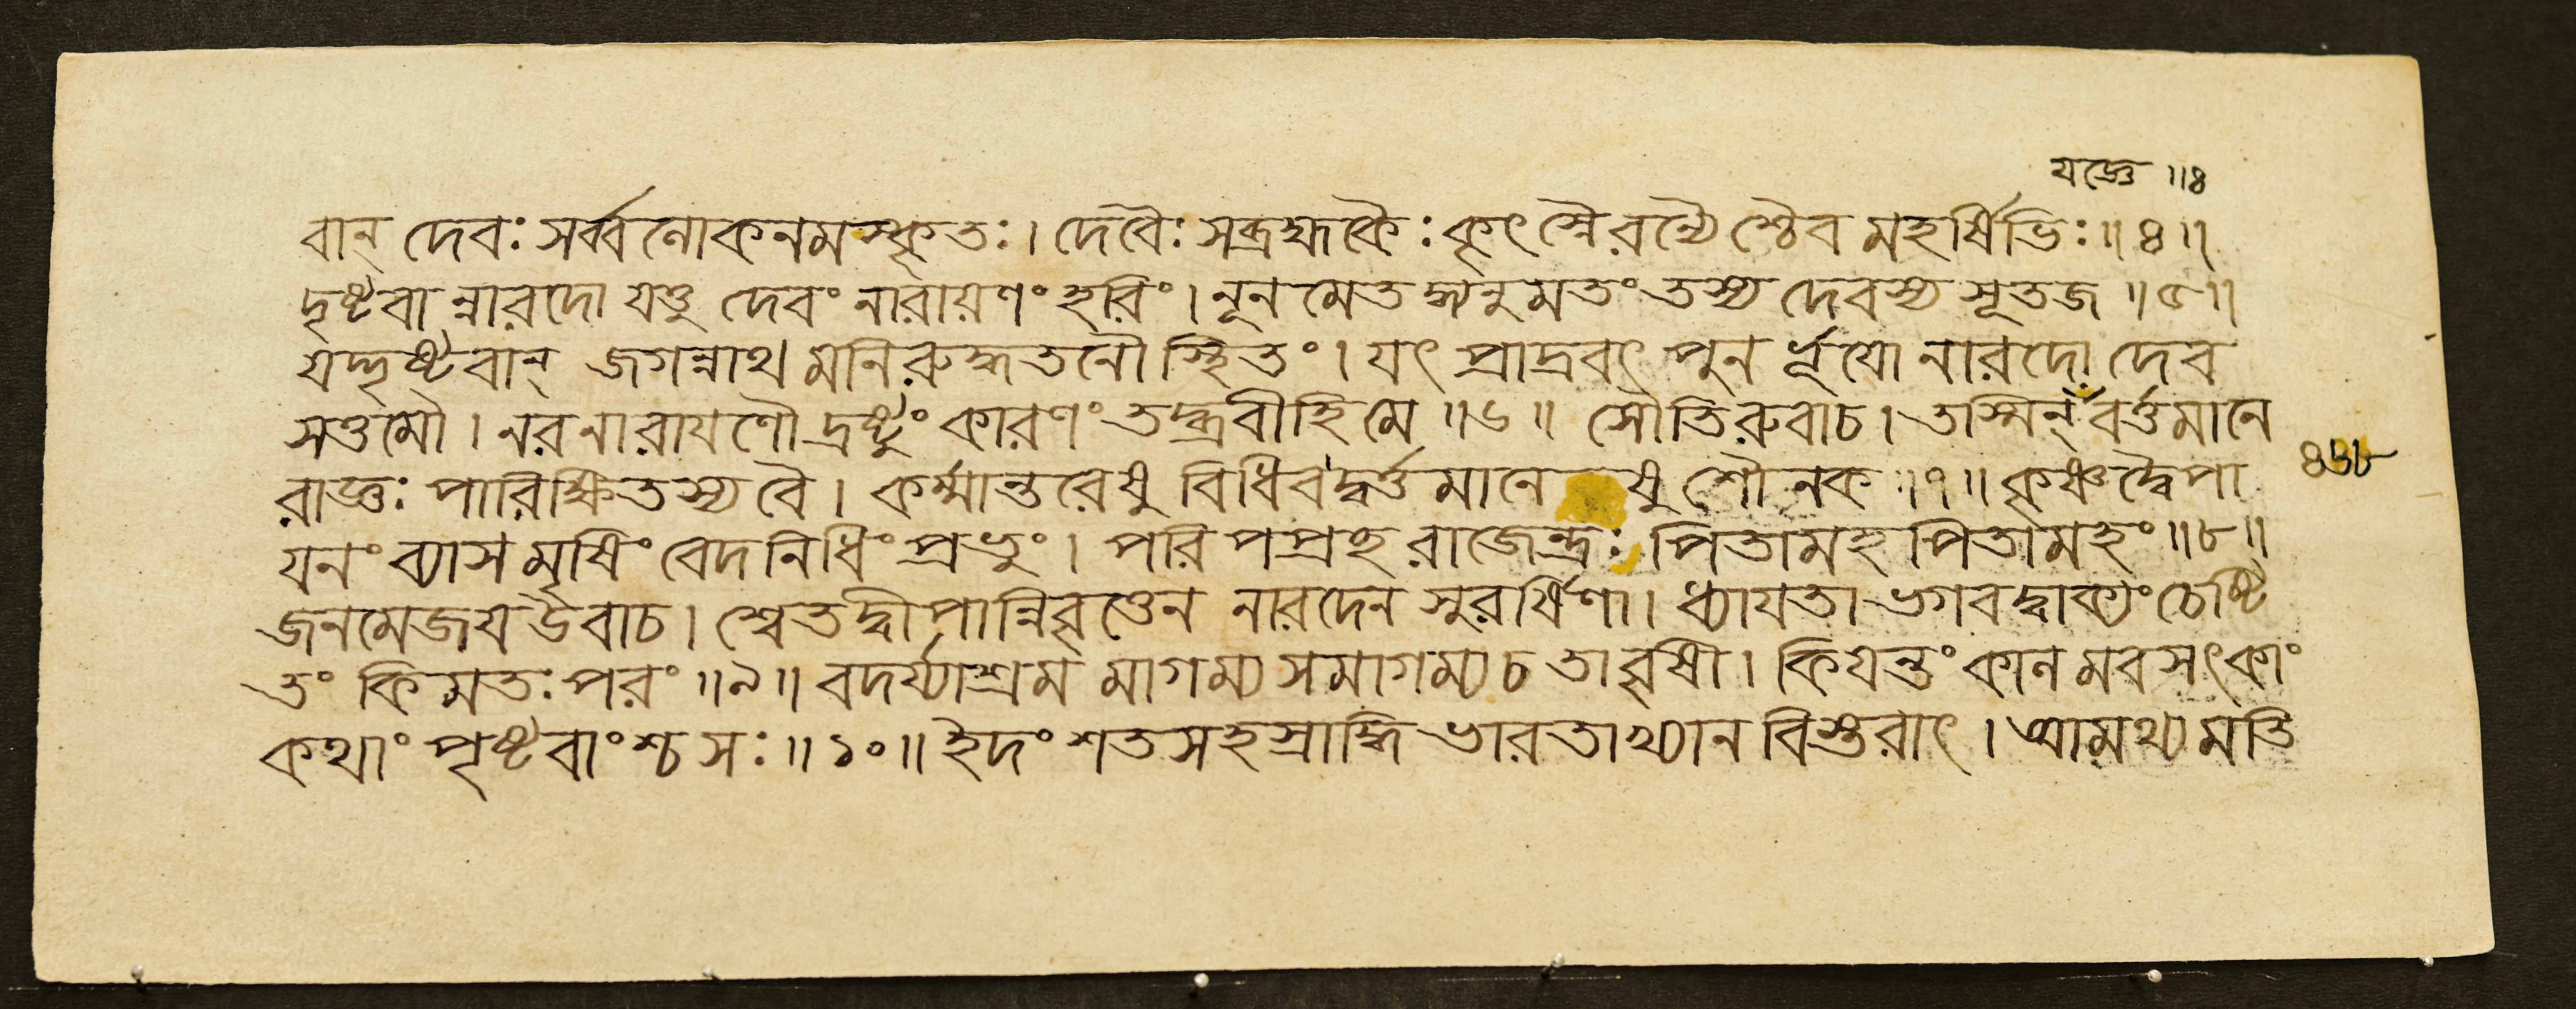 যজ্ঞে ॥৪
বান্ দেবঃ সর্ব্বলোকনমস্কৃতঃ। দেবৈঃ সব্রহ্মকৈঃ কৃৎস্নৈরন্যৈশ্চৈব মহর্ষিভিঃ॥৪॥
দৃষ্টবান্নারদো যত্তু দেবং নারায়ণং হরিং। নূনমেতদ্ধ্যনুমতং তস্য দেবস্য সূতজ॥৫॥
যদ্দৃষ্টবান্ জগন্নাথমনিরুদ্ধতনৌ স্থিতং। যৎ প্রাদ্রবৎ পুনর্ভূযো নারদো দেব
সত্তমৌ। নরনারাযণৌ দ্রষ্টুং কারণং তদ্ব্রবীহি মে॥৬॥ সৌতিরুবাচ। তস্মিন্ বর্ত্তমানে
রাজ্ঞঃ পারিক্ষিতস্য বৈ। কর্ম্মান্তরেষু বিধিবদ্বর্ত্তমানেষু শৌনক॥৭॥ কৃষ্ণদ্বৈপা
৪৬৮
যনং ব্যাসমৃষিং বেদনিধিং প্রভুং। পরিপপ্রচ্ছ রাজেন্দ্রঃ পিতামহপিতামহং॥৮॥
জনমেজয উবাচ। শ্বেতদ্বীপান্নিবৃত্তেন নারদেন সুরর্ষিণা। ধ্যাযতা ভগবদ্বাক্যং চেষ্টি
তং কিমতঃপরং॥৯॥ বদর্য্যাশ্রমমাগম্য সমাগম্য চ তাবৃষী। কিযন্তং কালমবসৎ কাং
কথাং পৃষ্টবাংশ্চ সঃ॥১০॥ ইদং শতসহস্রাদ্ধি ভারতাখ্যানবিস্তরাৎ। আমথ্য মতি